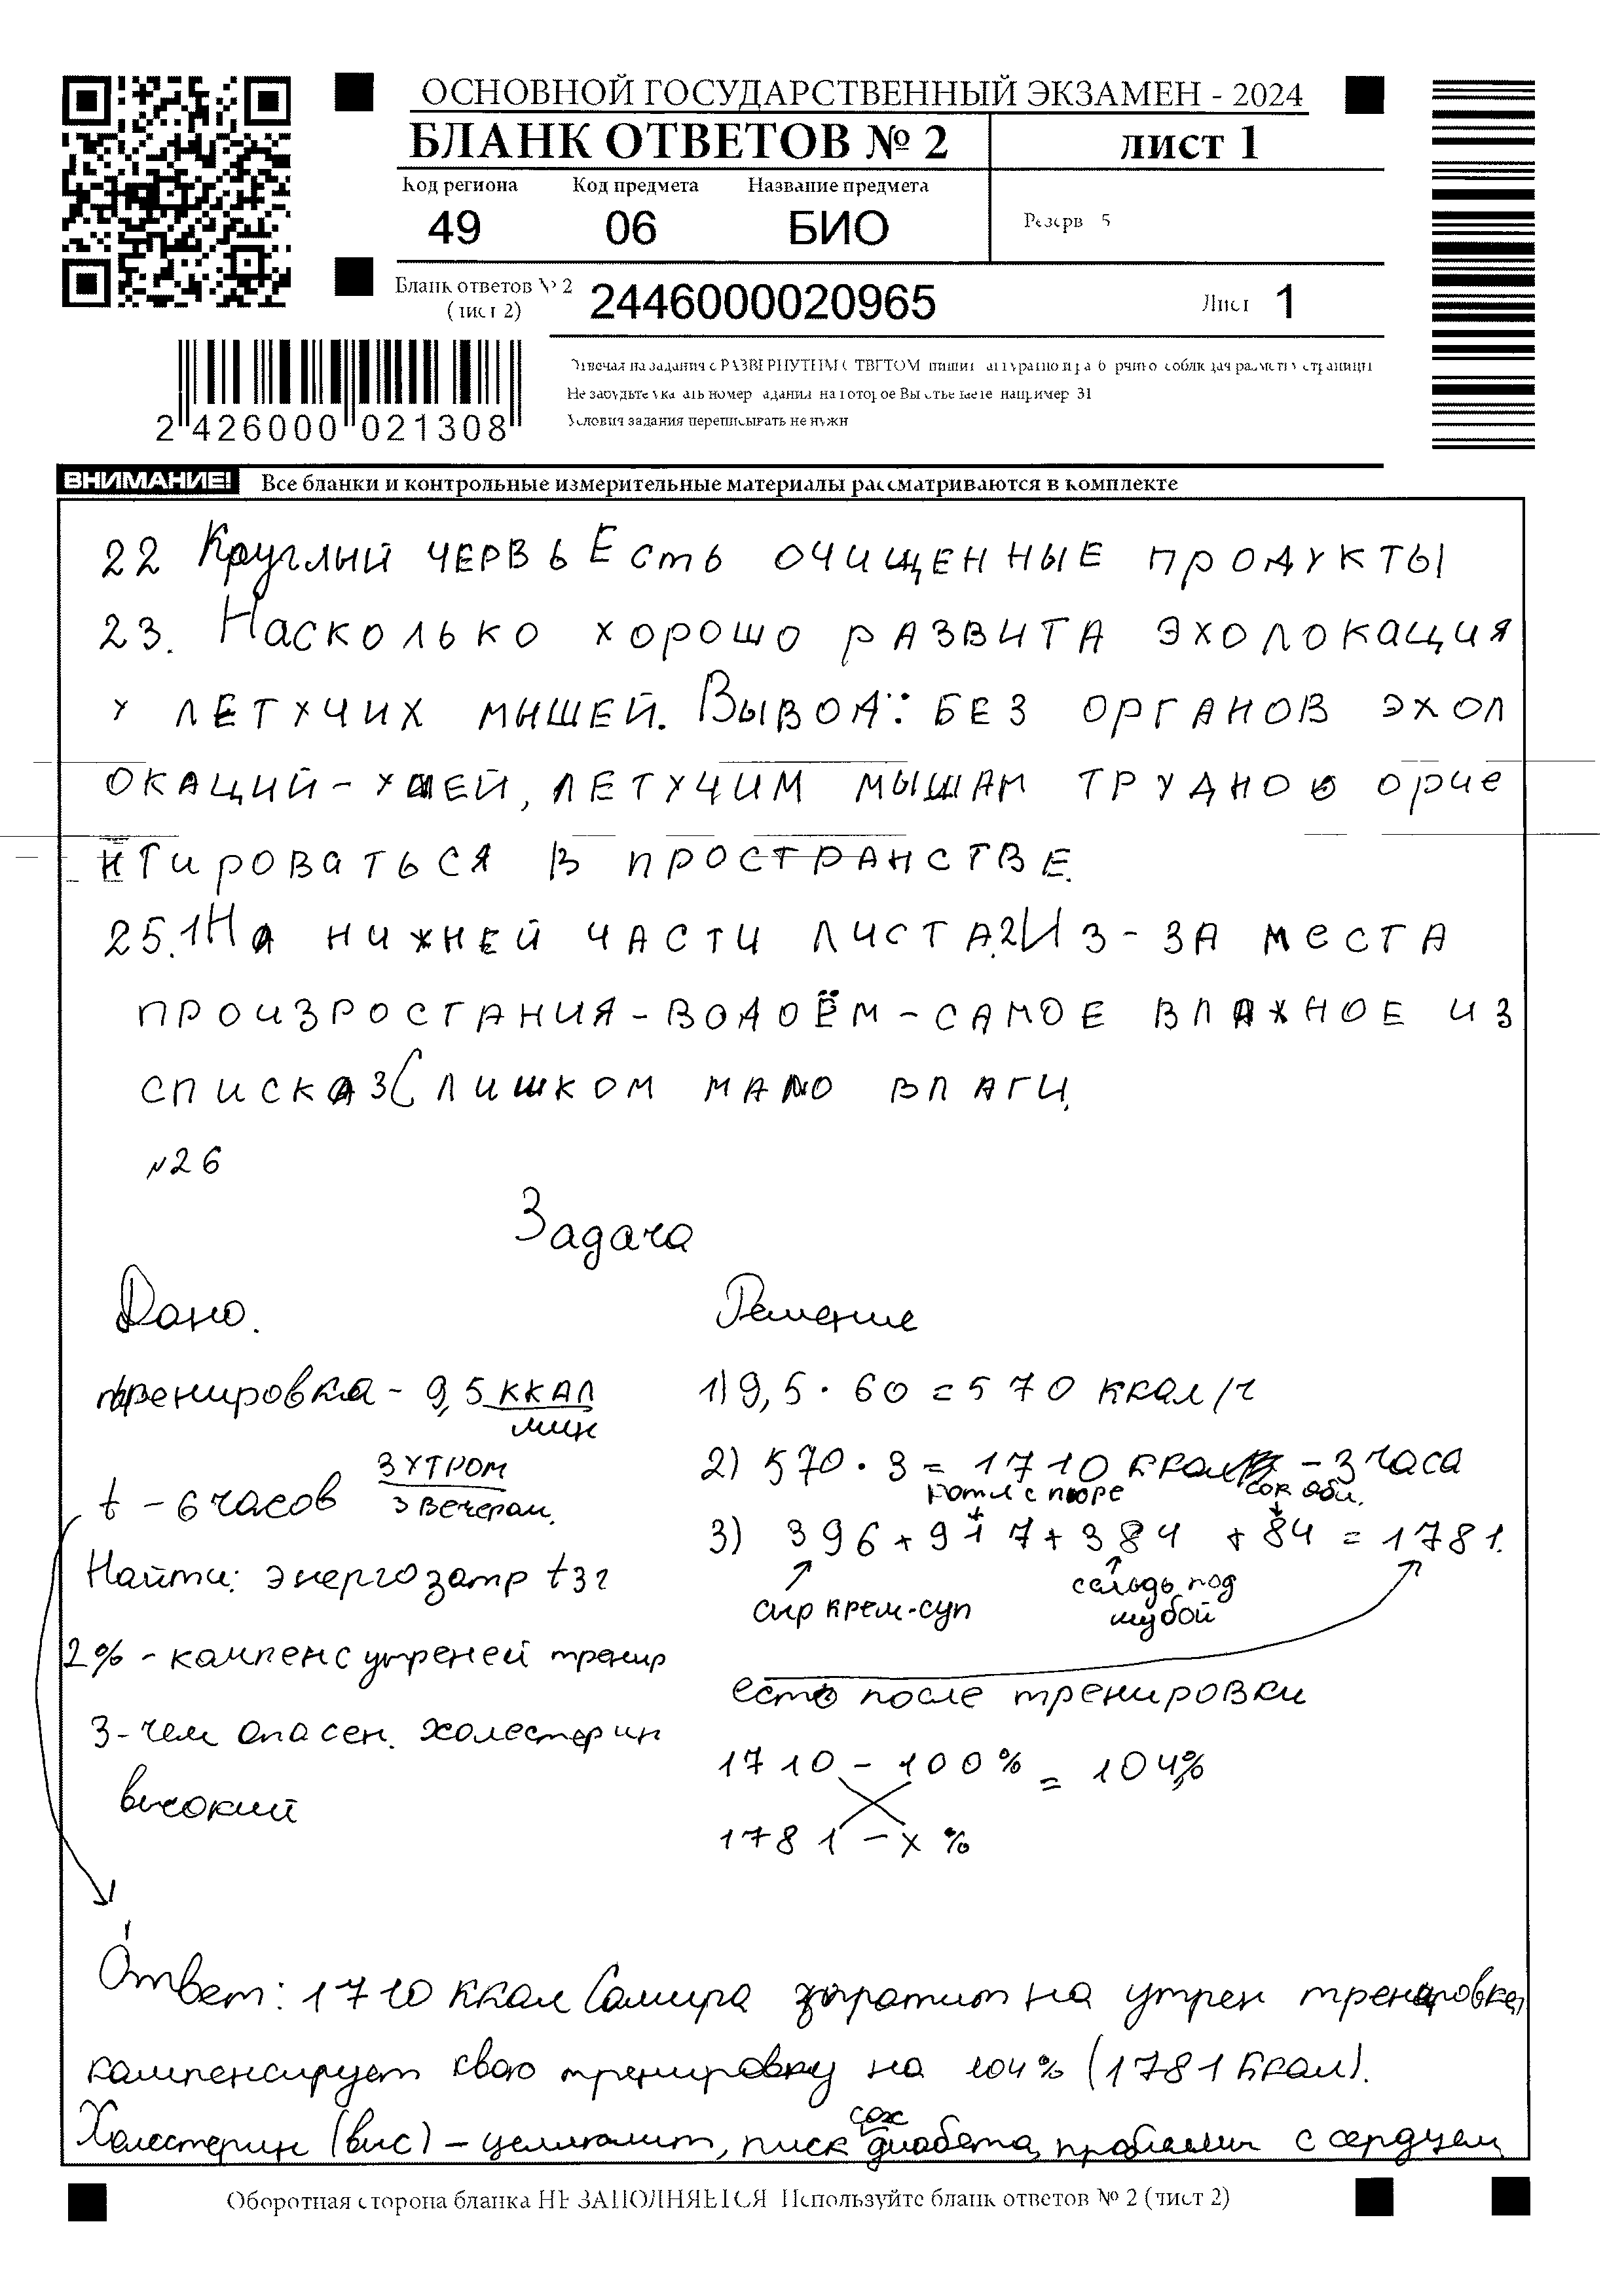 ОСНОВНОЙ ГОСУДАРСТВЕННЫЙ ЭКЗАМЕН - 2024
БЛАНК ОТВЕТОВ № 2
лист 1
Код региона Код предмета Название предмета
49 06 БИО
Резерв 5
Бланк ответов № 2
(лист 2)
2446000020965
Лист 1
2 426000 021308
Отвечая на задания с РАЗВЕРНУТЫМ ОТВЕТОМ пишите аккуратно и разборчиво соблюдая разметку страницы
Не забудьте указать номер задания на которое Вы отвечаете например 31
Условия задания переписывать не нужно
ВНИМАНИЕ! Все бланки и контрольные измерительные материалы рассматриваются в комплекте
22 Круглый червь Есть очищенные продукты
23. Насколько хорошо развита эхолокация
у летучих мышей. Вывод: без органов эхол
окаций-ушей, летучим мышам трудно орие
нтироваться в пространстве.
25.1 На нижней части листа. 2 Из-за места
произростания-водоём-самое влажное из
списка 3 Слишком мало влаги.
№26
Задача
Дано.
Решение
тренировка - 9,5 ккал
мин
1) 9,5 · 60 = 570 ккал/ч
t - 6 часов 3 утром
3 вечером.
2) 570 · 3 = 1710 ккал - 3 часа
котл с пюре сок обл.
3) 396 + 917 + 384 + 84 = 1781.
Найти: энергозатр t 3 г
сыр крем-суп
сельдь под
шубой
2% - компенс утреней тренир
есть после тренировки
3 - чем опасен. холестерин
высокий
1710 - 100% = 104%
1781 - x %
Ответ: 1710 ккал Самира затратит на утрен тренировке,
компенсирует свою тренировку на 104% (1781 ккал).
сах
Холестерин (выс) - целлюлит, риск диабета, проблемы с сердцем
Оборотная сторона бланка НЕ ЗАПОЛНЯЕТСЯ Используйте бланк ответов № 2 (лист 2)